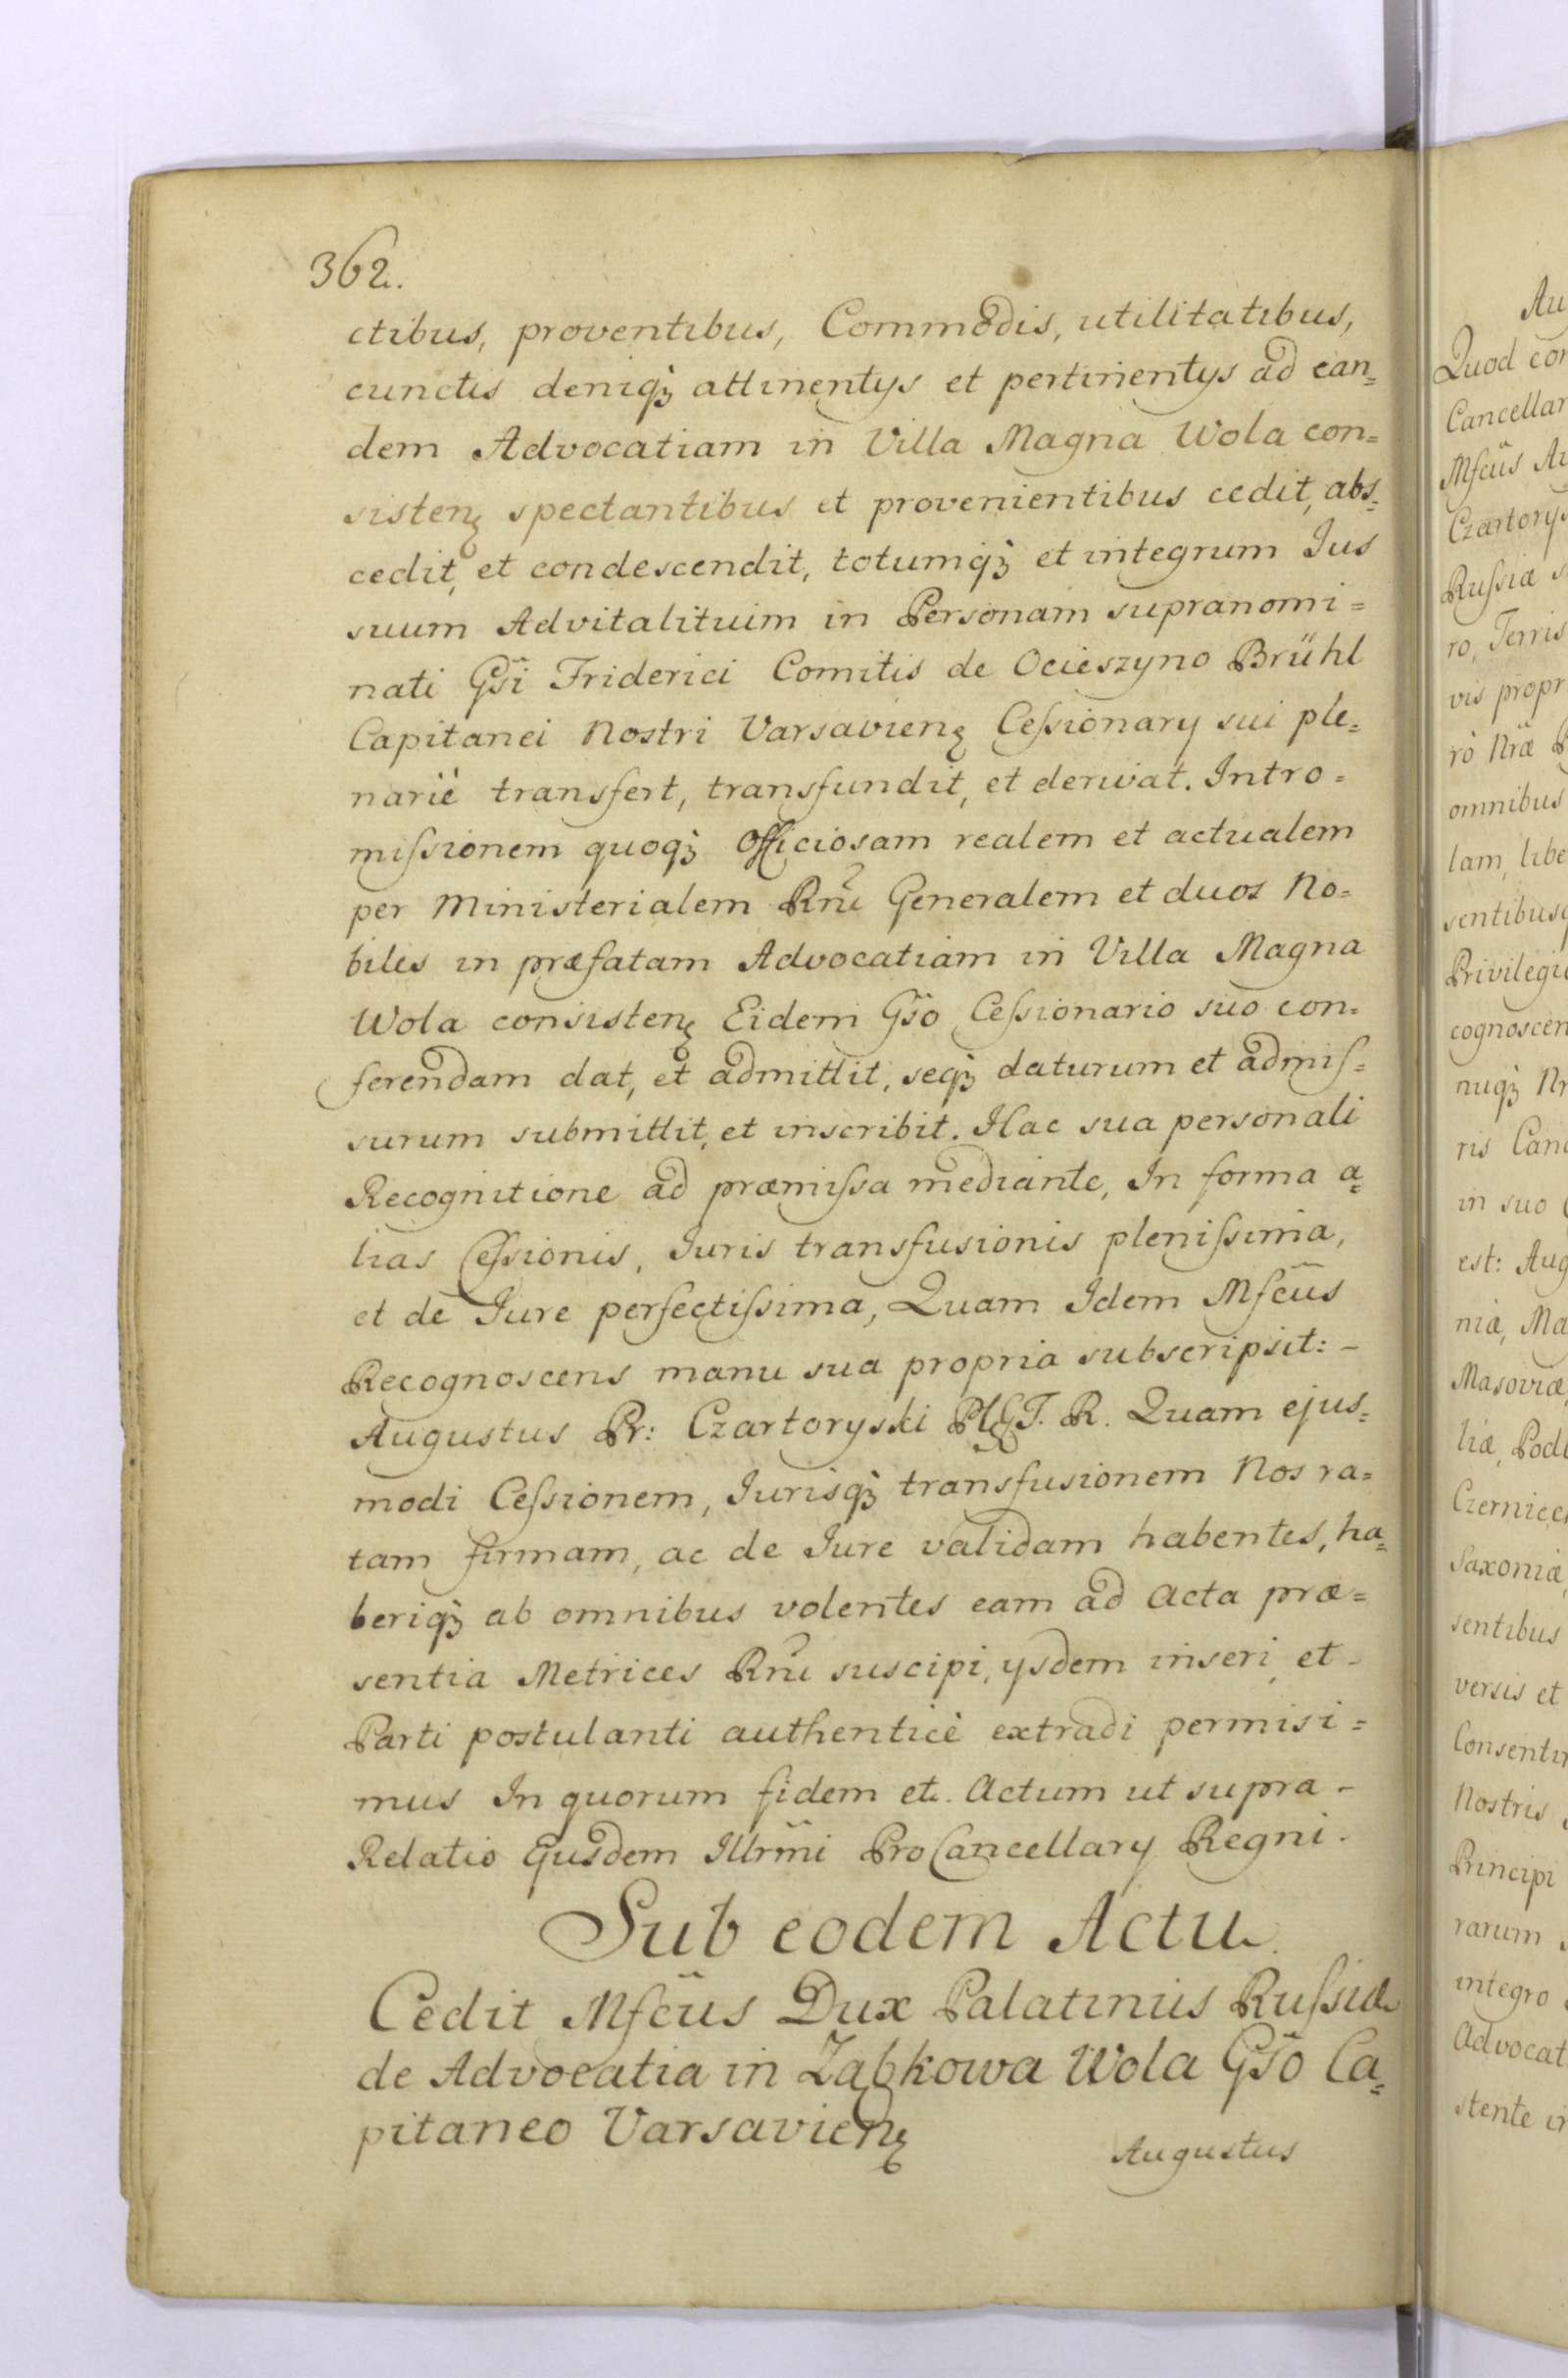 362.
ctibus, proventibus, Commodis, utilitatibus,
cunctis deniqꝫ attinentys et pertinentys ad ean=
dem Advocatiam in Villa Magna Wola con=
sistenꝫ spectantibus et provenientibus cedit, abs=
cedit, et condescendit, totumqꝫ et integrum Jus
suum Advitalituim in Personam supranomi=
nati Gsi Friderici Comitis de Ocieszyno Brühl
Capitanei Nostri Varsavienꝫ Ceſsionary sui ple=
narié transfert, transfundit, et derivat. Intro=
miſsionem quoqꝫ Officiosam realem et actualem
per Ministerialem Rni Generalem et duos No=
biles in præfatam Advocatiam in Villa Magna
Wola consistenꝫ Eidem Gso Ceſsionario suo con=
ferendam dat, et admittit, seqꝫ daturum et admiſ=
surum submittit, et inscribit. Hac sua personali
Recognitione ad præmiſsa mediante, In forma a=
lias Ceſsionis, Juris transfusionis pleniſsima,
et de Jure perfectiſsima, Quam Idem Mfcus
Recognoscens manu sua propria subscripsit: -
Augustus Pr: Czartoryski P.G.T. R. Quam ejus=
modi Ceſsionem, Jurisqꝫ transfusionem Nos ra=
tam firmam, ac de Jure validam habentes, ha=
beriqꝫ ab omnibus volentes eam ad Acta præ=
sentia Metrices Rni suscipi, ysdem inseri, et -
Parti postulanti authenticè extradi permisi=
mus In quorum fidem etc. Actum ut supra -
Relatio Ejusdem Illrmi ProCancellary Regni.
Sub eodem Actu.
Cedit Mfcus Dux Palatinus Ruſsiæ
de Advocatia in Ząbkowa Wola Gso Ca=
pitaneo Varsavienꝫ
Augustus
Au
Quod con
Cancellar
Mfcus Au
Czartorys
Ruſsiæ s
ro, Terris
vis propr
rò Nræ
omnibus
lam, libe
sentibusq
Privilegi
cognoscen
nuqꝫ Nr
ris Canc
in suo
est: Aug
niæ, Ma
Masoviæ,
liæ, Podl
Czernicc
Saxoniæ,
sentibus
versis et
Consentim
Nostris
Principi
rarum
integro
Advocat
stente in